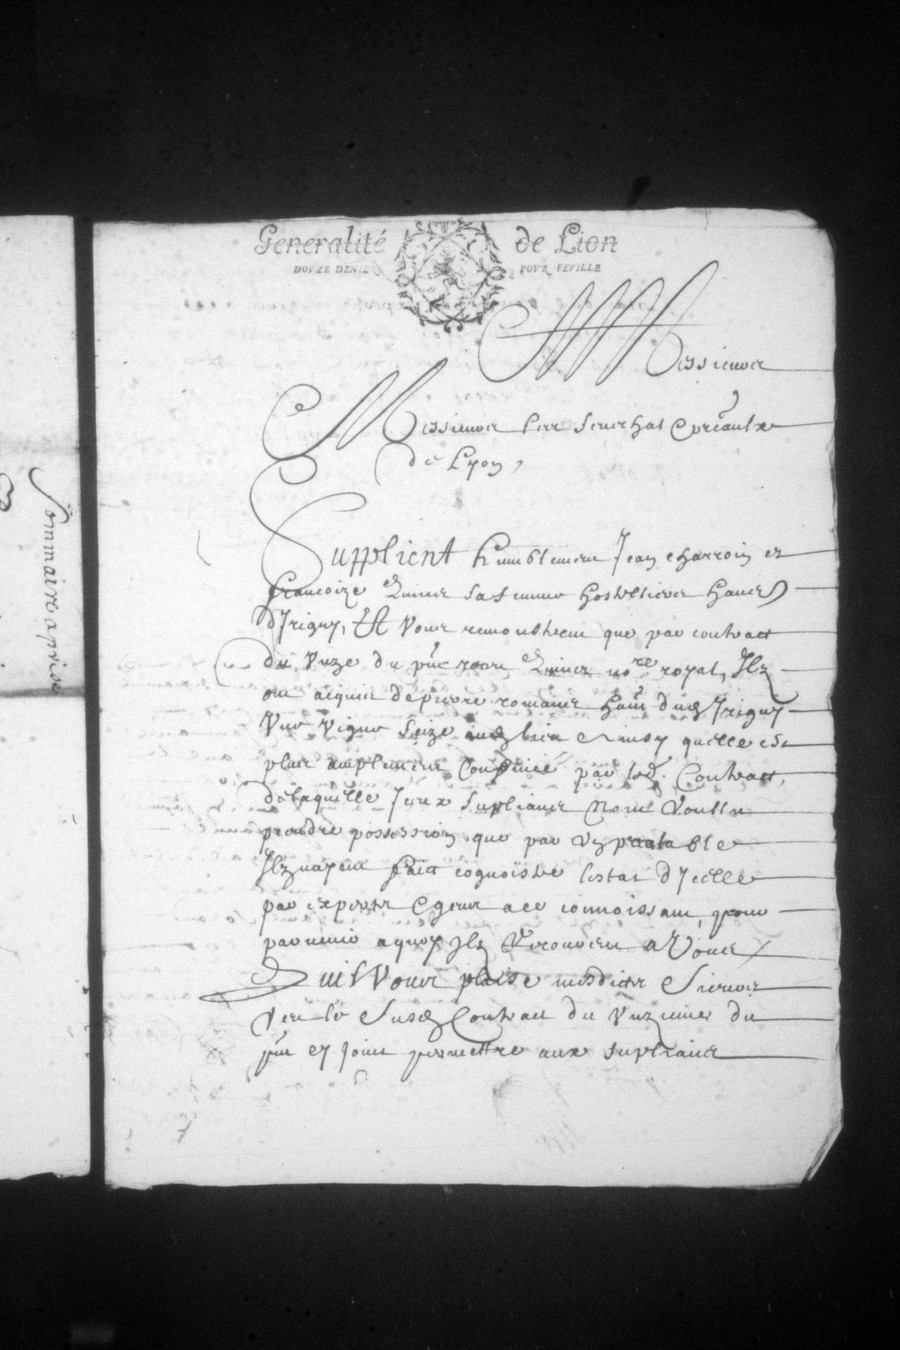 Generalité de Lion
DOVZE DENIE POVR FEVILLE
Messieurs
Messieurs les Seneschal & presidaulx
de Lyon,
Supplient humblement Jean charroin et
francoize sa femme hosteliers
d'Irigny, Et Vous remonstrent que par contract
du Vnze du pnt royal, Ilz
ont acquis de pierre romanet dud Irigny
Vne Vigne size aud lieu & ainsy quelle est
plus amplement Confinée par led. Contract,
de laquelle Iceux suplians n'ont Voullu
prendre possession que par Vn preallable
Ilz nayent faict cognoistre lestat d'Icelle
par expertz & gens a ce connoissant, pour
parvenir a quoy Ilz recourent a Vous
Quil Vous plaise mesditz Sieurs
Veu le Susd Contract du Vnzime du
pnt cy Joint permettre aux supliants
Sommaire aprise